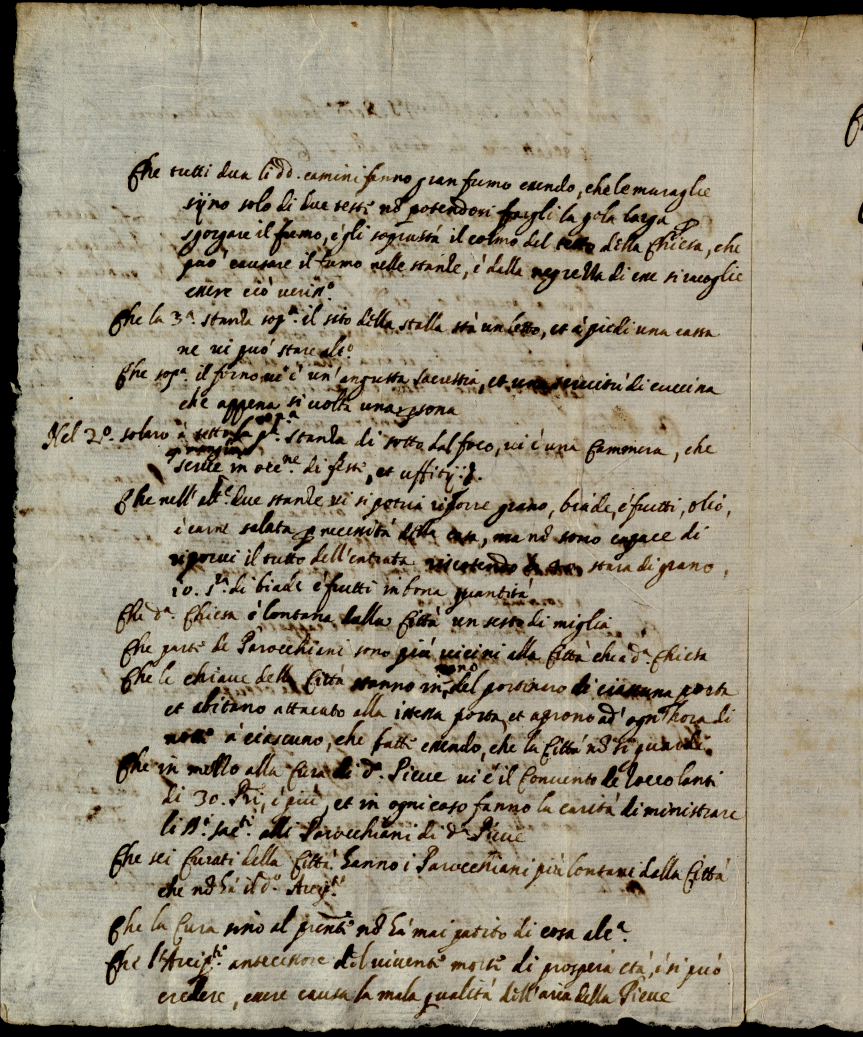 Che tutti dua li dd. camini fanno gran fumo essendo, che le muraglie
sijno solo di due teste nō potendosi fargli la gola larga p
sgorgare il fumo, e gli soprustà il colmo del tetto della Chiesa, che
può causare il fumo nelle stanze, e dalla negrezza di esse si racoglie
essere ciò veriss.o
Che la 3.a stanza sop.a il sito della stalla stà un letto, et à piedi una cassa
ne vi può stare alt.o
Che sop.a il forno vi è un' angusta sacrestia, et una di cuccina
che appena si volta una psona
Nel 2.o solaro à stanza di sotto dal foco, vi è una Cammera, che
serve in occ.ne di feste, et uffitij.
Che nell' alt.e due stanze vi si potrà riporre grano, biade, è frutti, olio,
è carne salata p necessità della casa, ma nō sono capace di
riporvi il tutto dell' entrata stara di grano,
10. s.ra di biade è frutti in bona quantità
Che d.a Chiesa è lontana dalla Città un sesto di miglia
Che parte de Parocchiani sono più vicini alla Città che à d.a Chiesa
Che le chiave della Città stanno in mano del portinaro di ciascuna porta
et abitano attacato alla istessa porta, et aprono ad' ogn' hora di
notte à ciascuno, che fatti essendo, che la Città nō si guardi.
Che in mezzo alla Cura di d.a Pieve vi è il Convento de Zoccolanti
di 30. Pri, è più, et in ogni caso fanno la carità di ministrare
li SS.i sac.ti alli Parocchiani di d.a Pieve
Che sei Curati della Città hanno i Parocchiani più lontani dalla Città
che nō hà il d.o Arcip.te
Che la Cura sino al pnte nō hà mai patito di cosa alc.a
Che l'Arcip.te antecessore del vivente morse di prospera età, è si può
credere, essere causa la mala qualità dell' aria della Pieve